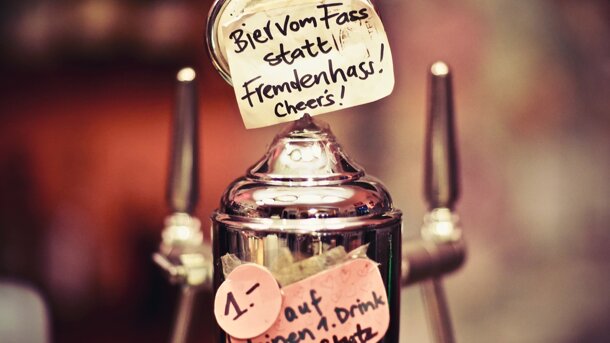 Bier vom Fass
statt
Fremdenhass!
Cheer's!
1.-
auf
einen 1. Drink